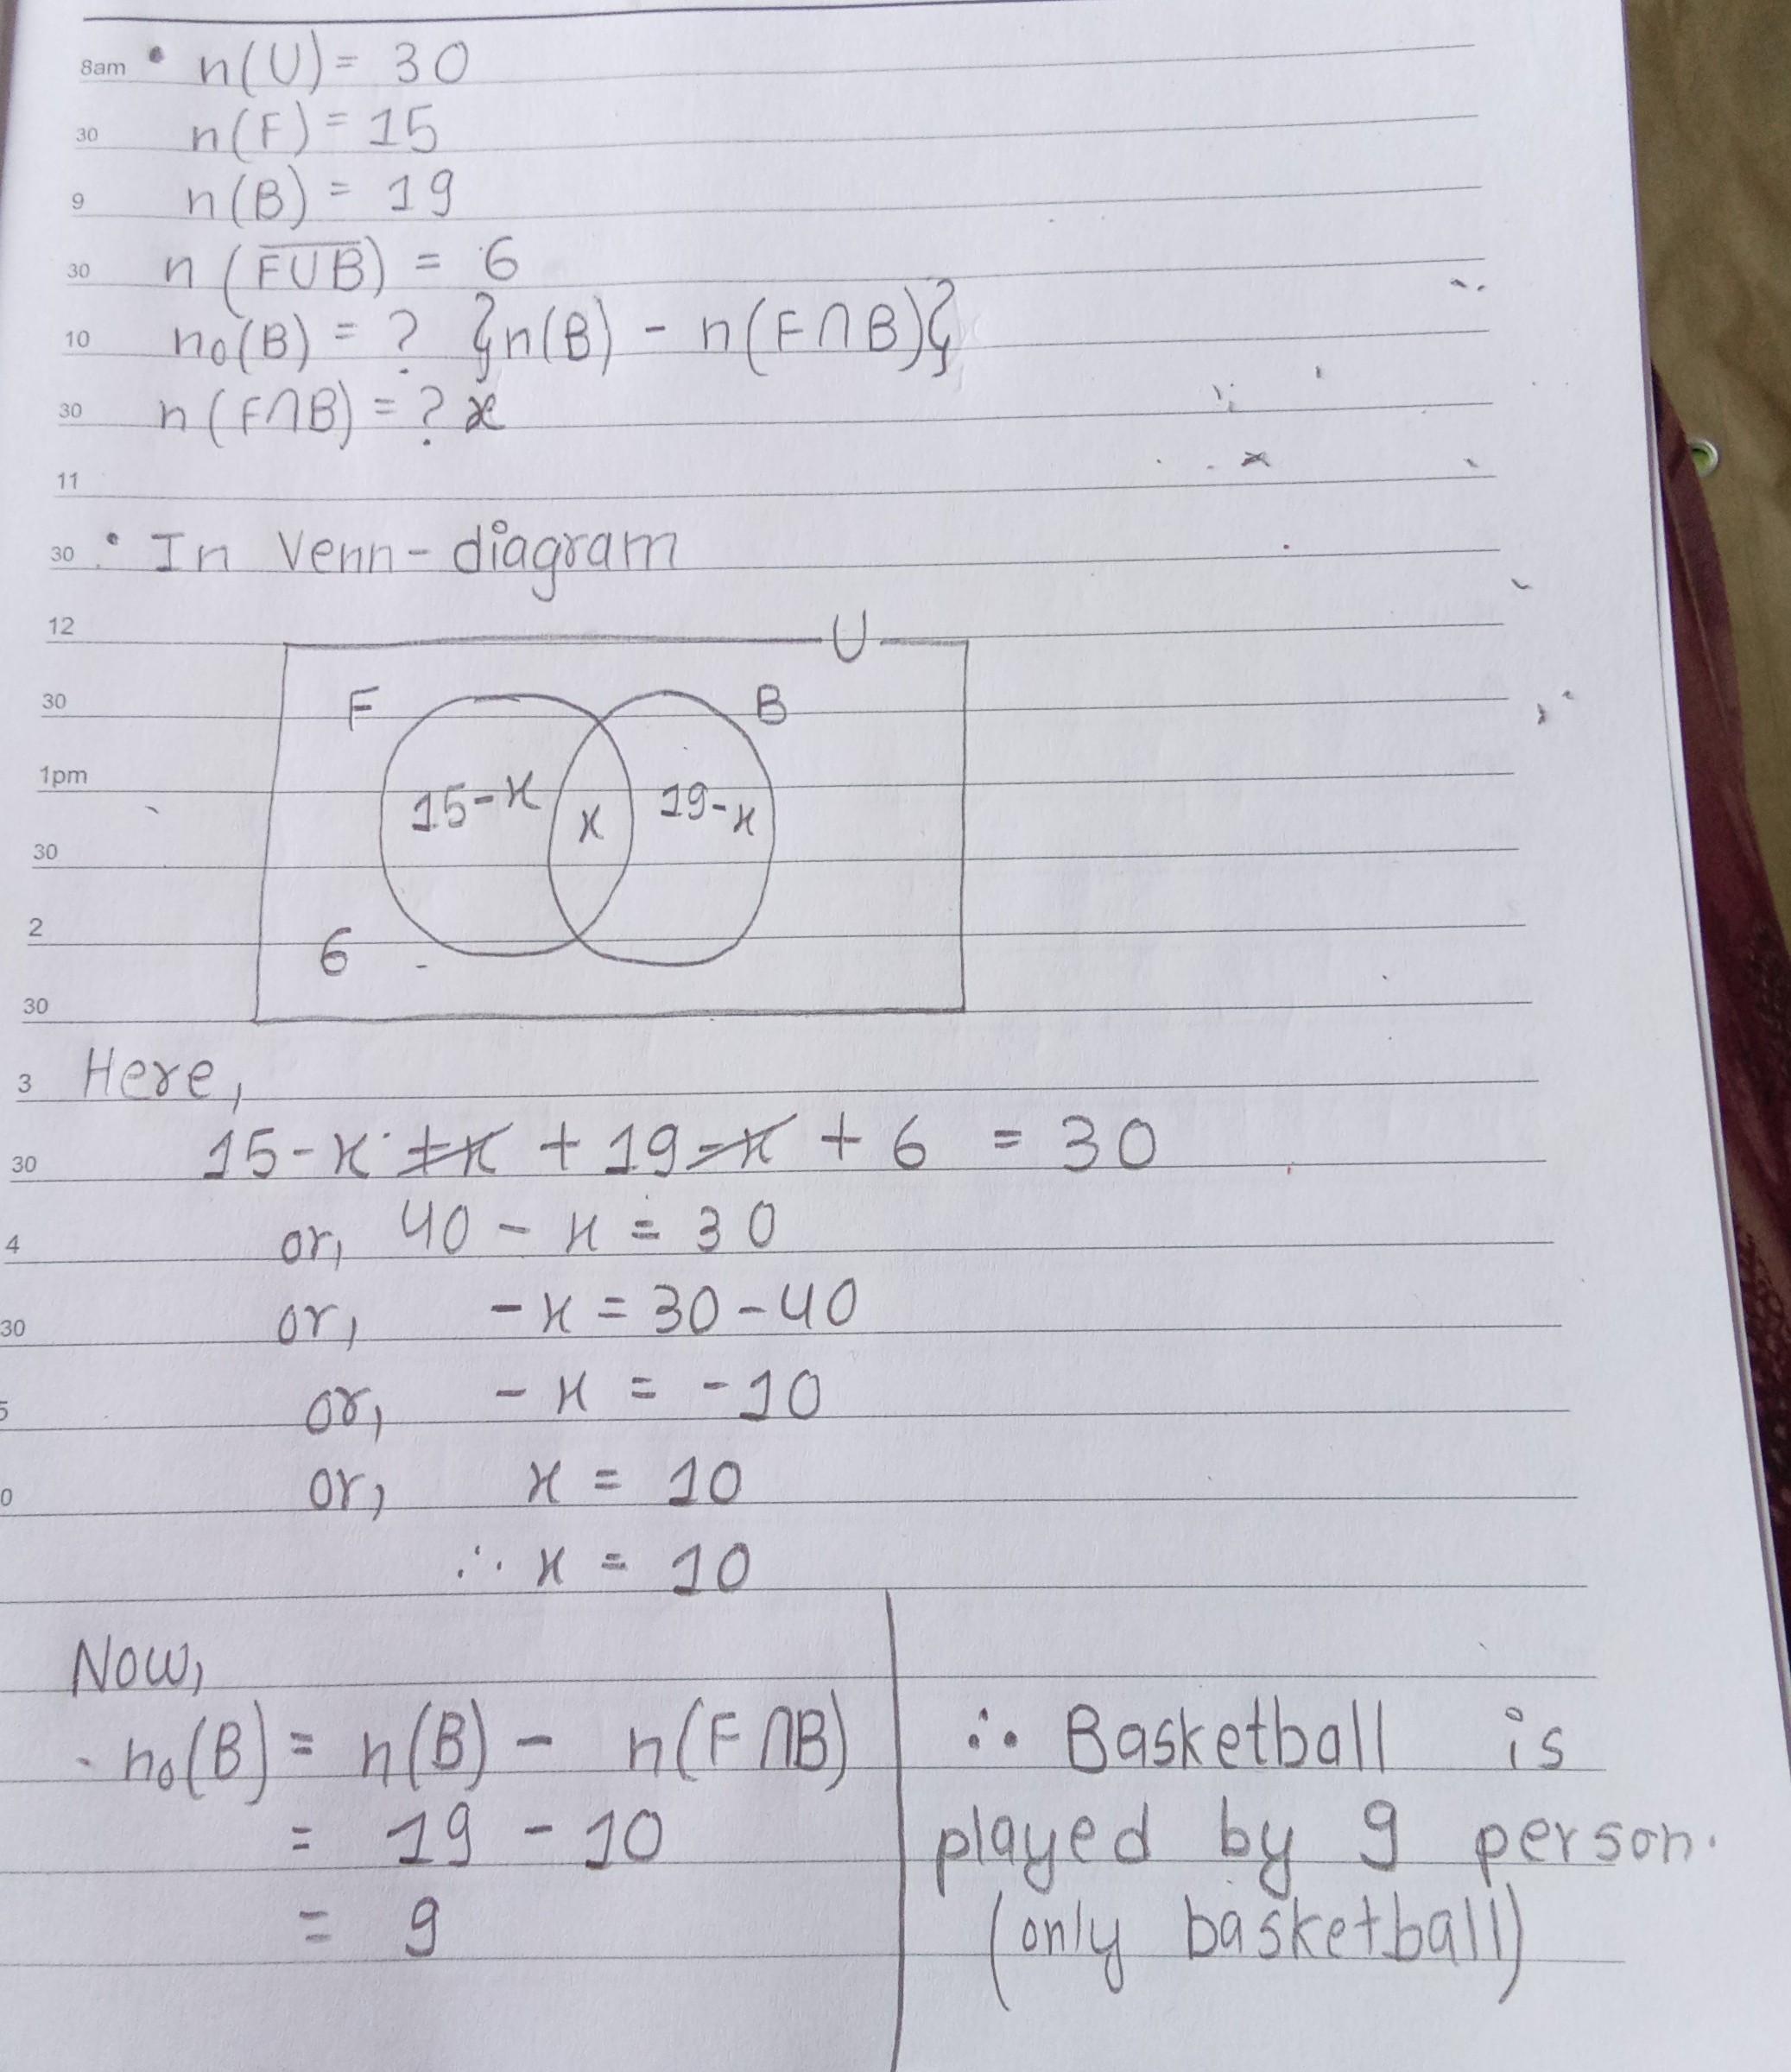 8am • n(U) = 30
30 n(F) = 15
9 n(B) = 19
30 n(F̅U̅B̅) = 6
10 n₀(B) = ? {n(B) - n(F∩B)}
30 n(F∩B) = ? x
11
30 • In Venn-diagram
12 U
30 F B
1pm 15-x x 19-x
30
2 6
30
3 Here,
30 15-x +x + 19-x + 6 = 30
4 or, 40 - x = 30
30 or, -x = 30-40
5 or, -x = -10
0 or, x = 10
∴ x = 10
Now,
n₀(B) = n(B) - n(F∩B)
= 19 - 10
= 9
∴ Basketball is
played by 9 person.
(only basketball)